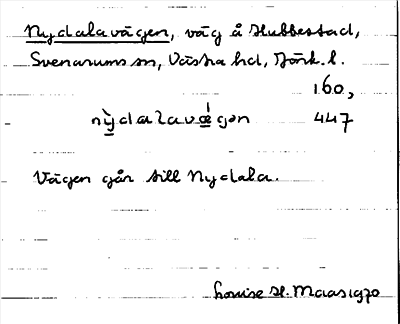 Nydalavägen, väg å Stubbestad,
Svenarums sn, Västra hd, Jönk. l.
160,
nỳdalavægən 447
Vägen går till Nydala.
Louise H. Maas 1970